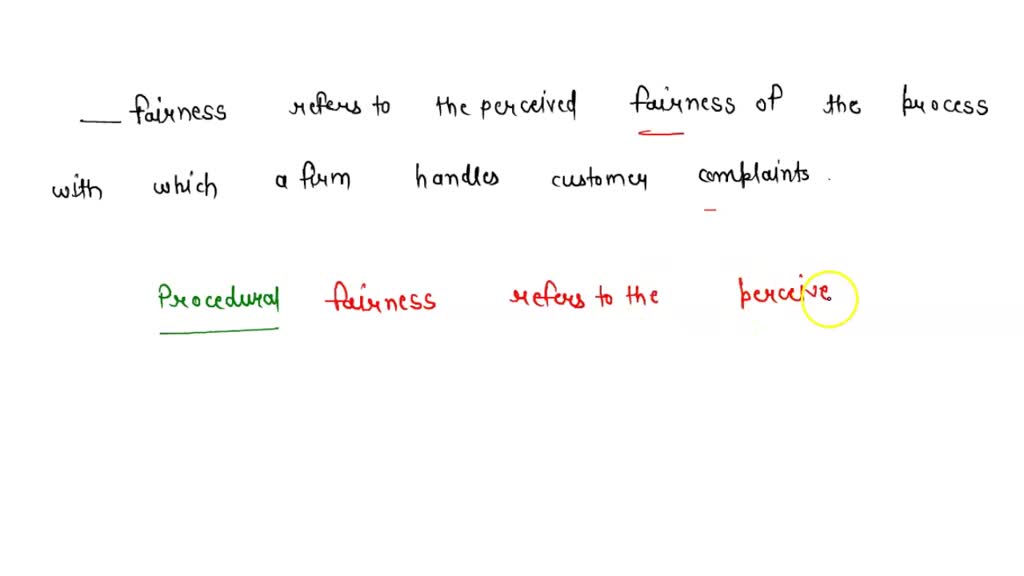 ___ fairness refers to the perceived fairness of the process
with which a firm handles customer complaints.
Procedural fairness refers to the perceive